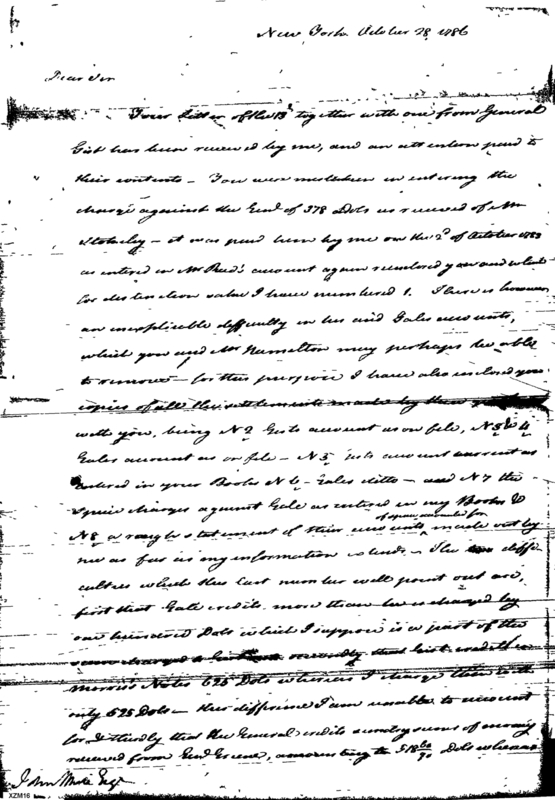 New York October 28, 1786
Dear Sir
Your letter of the 13th together with one from General
Gist has been received by me, and an attention paid to
their contents – You were mistaken in entering the
charge against the Genl of 378 Dols as received of Mr
– it was paid him by me on the 2d of October 1783
as entered in Mr Reed's account again enclosed you and which
for distinction sake I have numbered 1. There is however
an inexplicable difficulty in his and Gales accounts,
which you and Mr Hamilton may perhaps be able
to remove – for this purpose I have also inclosed you
copies of all the settlements made by them
with you, being No 2 Gists account as on file, No 3 & 4
Gales account as on file – No 5 Gists account current as
entered in your Books No 6 – Gales ditto – and No 7 the
charges against Gale as entered in my Books &
No 8 a rough statement of their accounts made out by
me as far as my information extends – The diffi
culties which this last number will point out are,
first that Gale credits more than he is charged by
one hundred Dols which I suppose is a part of the
secondly that Gist credits in
Morris's Notes 625 Dols whereas I charge them with
only 525 Dols – this difference I am unable to account
for & thirdly that the General credits sundry sums of money
received from Genl Greene, amounting to 518 60/90 Dols whereas
John White Esqr
XZM16